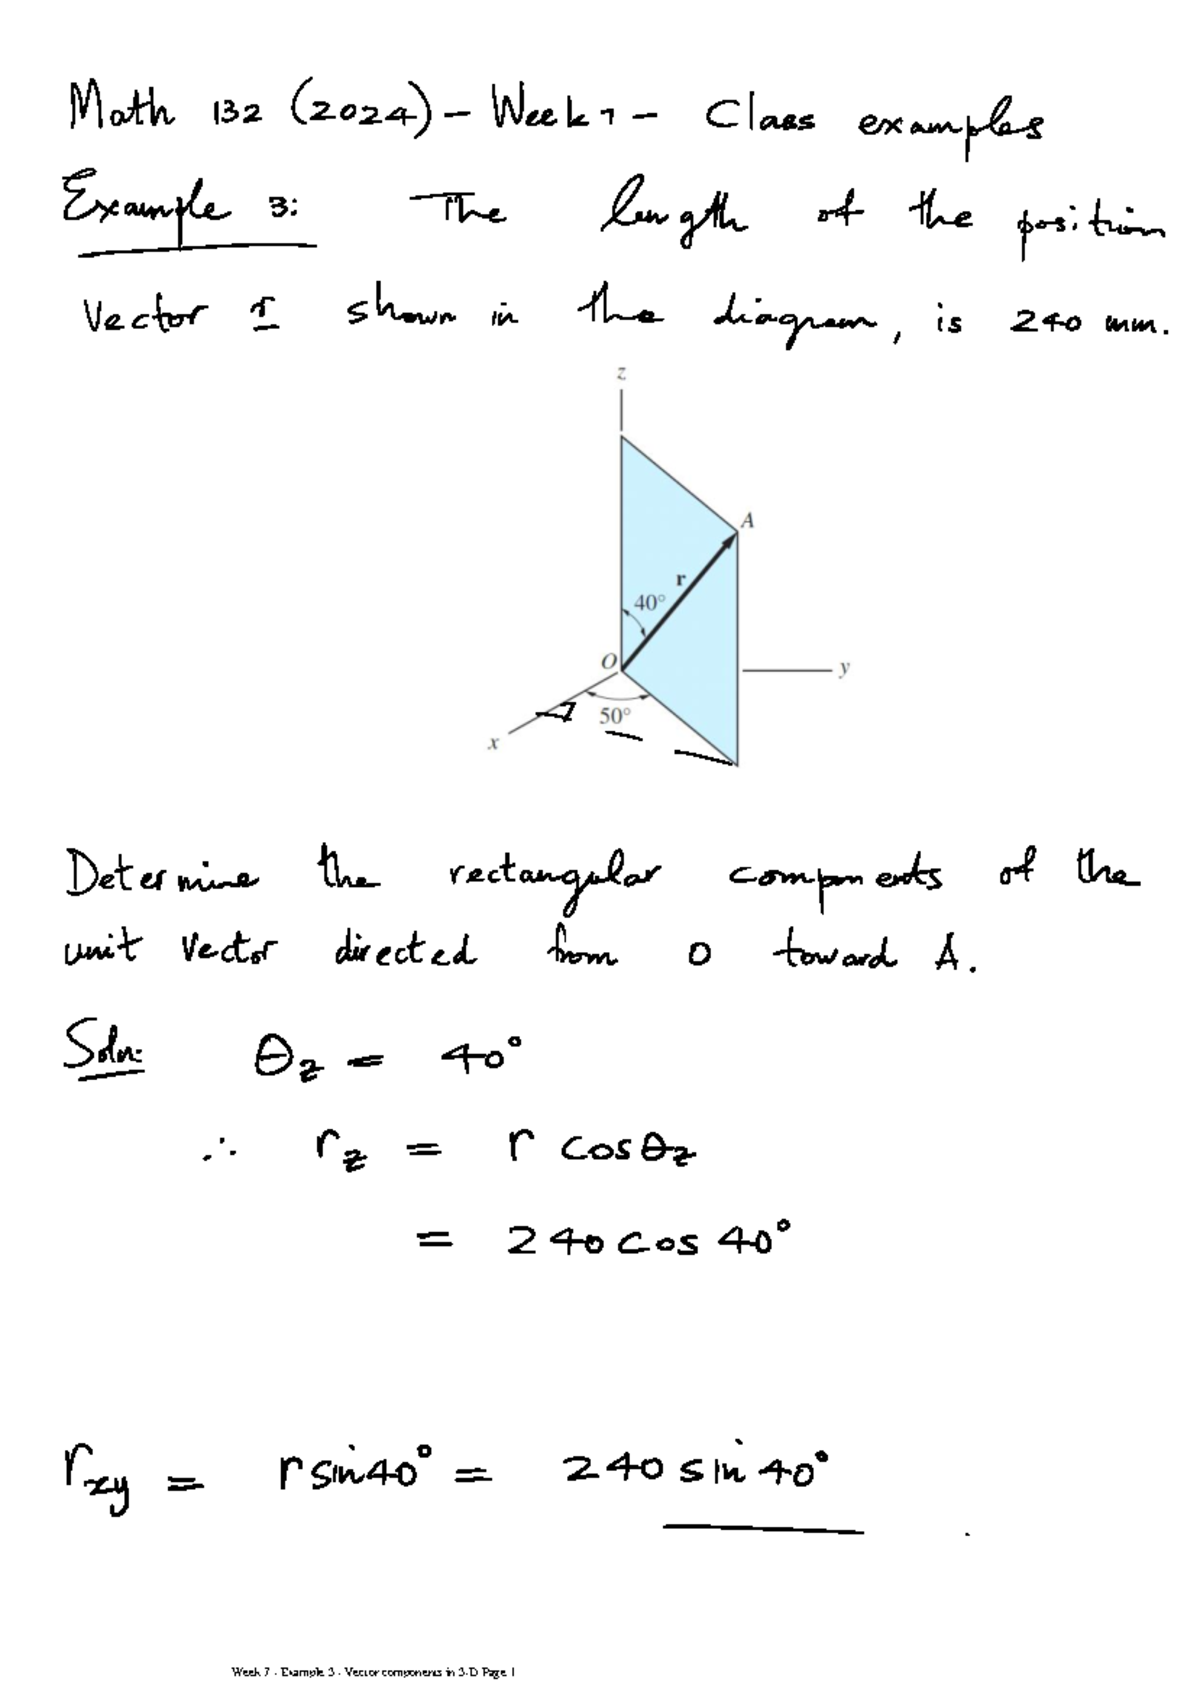 Math 132 (2024) - Week 7 - Class examples
Example 3: The length of the position
vector r shown in the diagram, is 240 mm.
z
A
r
40°
O
y
50°
x
Determine the rectangular components of the
unit vector directed from O toward A.
Soln: θz = 40°
∴ rz = r cos θz
= 240 cos 40°
rxy = r sin 40° = 240 sin 40°
Week 7 - Example 3 - Vector components in 3-D Page 1